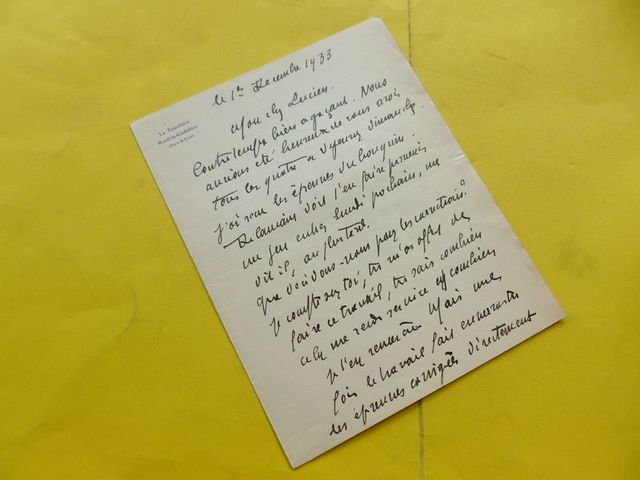 La Tourillière
Rueil-la-Gadelière
(Eure & Loir)
le 1er Décembre 1933
Mon cher Lucien.
Contretemps bien agaçant. Nous
aurions été heureux de vous avoir
tous les quatre à déjeuner dimanche.
J'ai reçu les épreuves du bouquin.
Delamain doit t'en faire parvenir
un jeu entier lundi prochain, me
dit-il, au plus tard.
que décidons-nous pour les corrections?
Je compte sur toi, tu m'as offert de
faire ce travail, tu sais combien
cela me rends service et combien
je t'en remercie Mais une
fois le travail fait enverras-tu
les épreuves corrigées directement